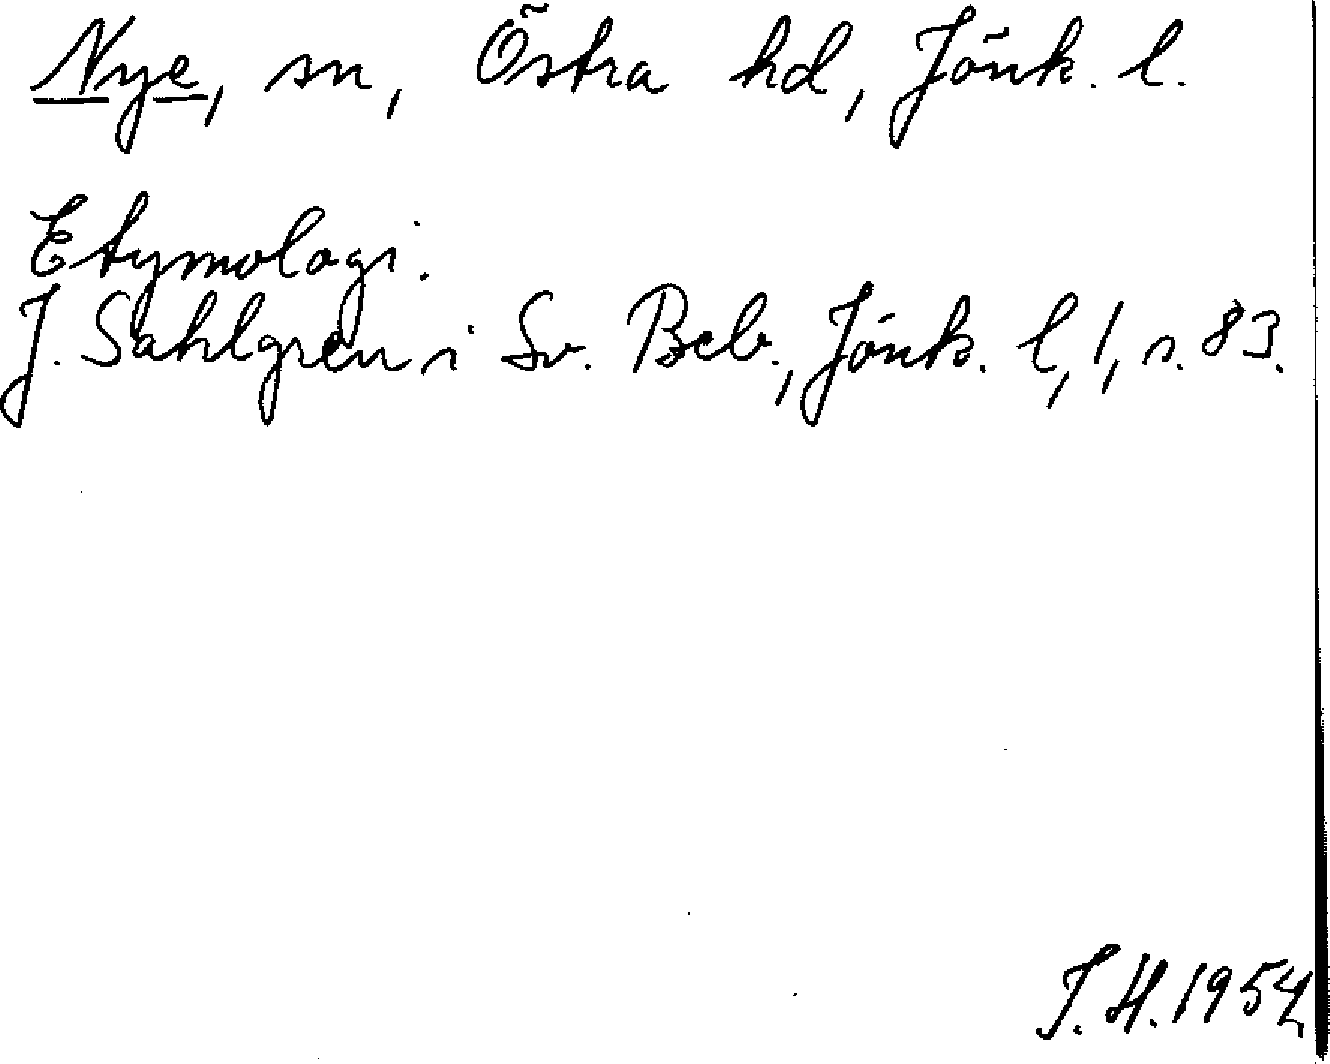 Nye, sn, Östra hd, Jönk. l.
Etymologi.
J. Sahlgren i Sv. Beb., Jönk. l, 1, s. 83.
J. H. 1954